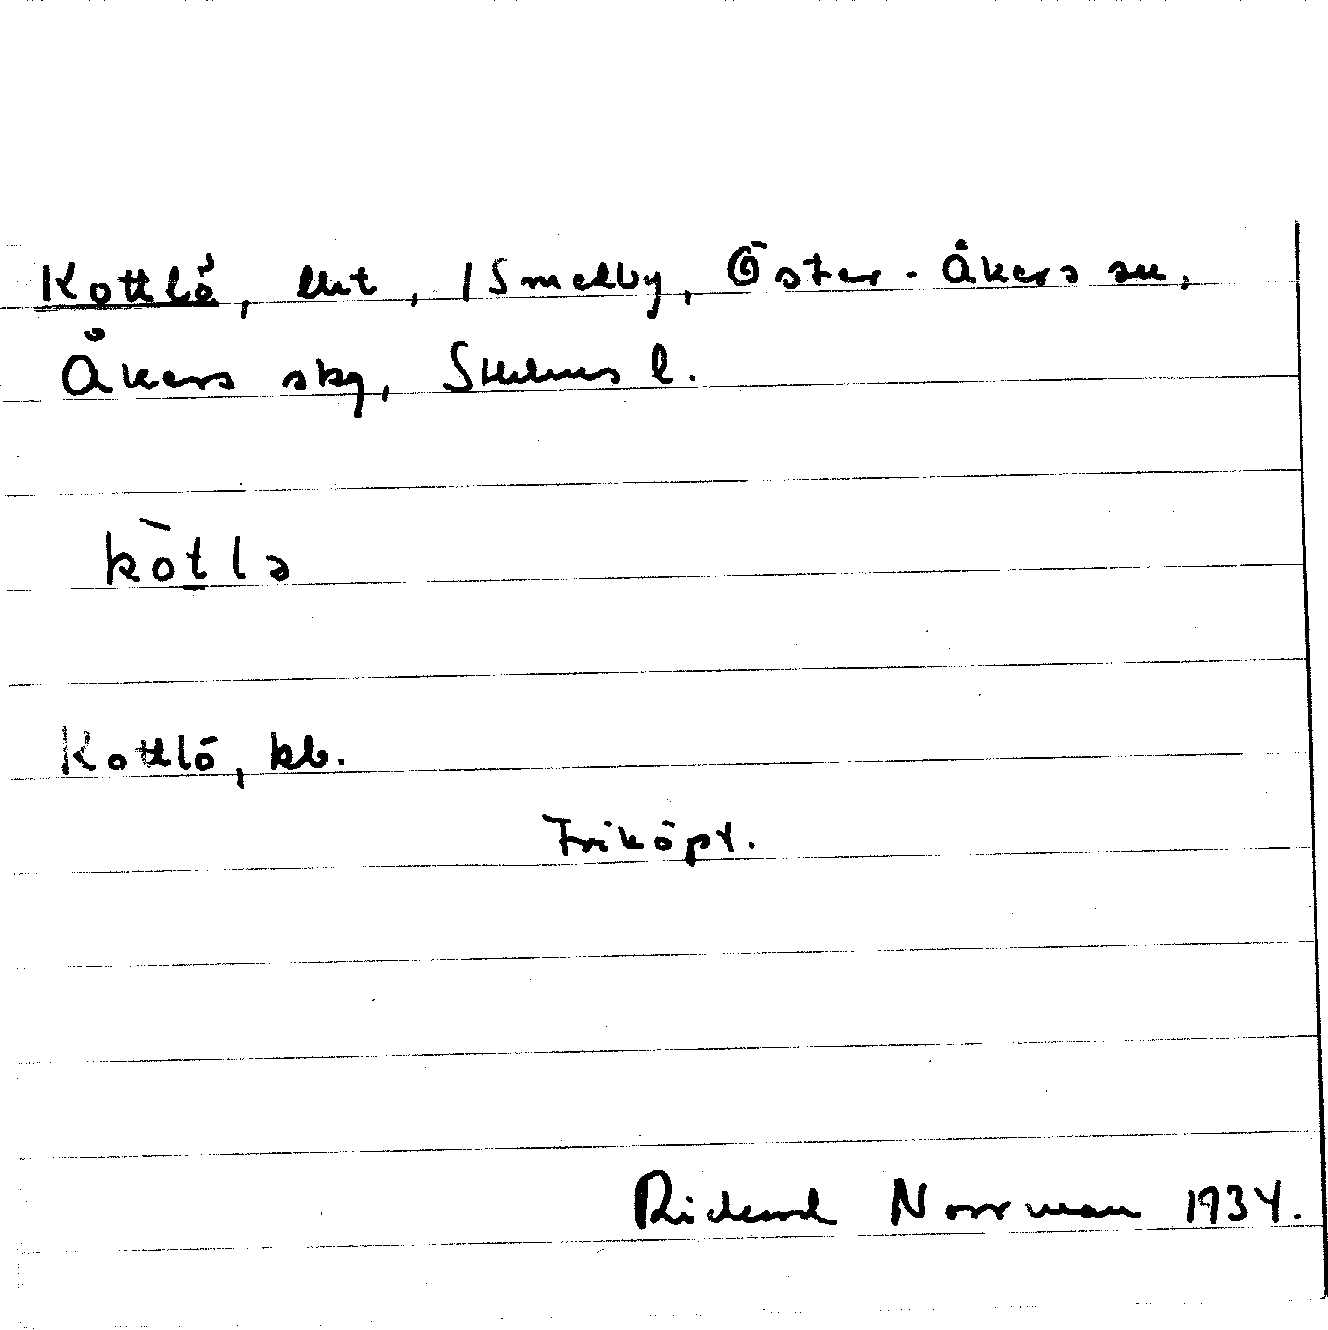 Kottlö, lht, 1 Smedby, Öster-Åkers sn,
Åkers skg, Sthlms l.
kòtlə
Kottlö, kb.
Friköpt.
Rickard Norrman 1934.